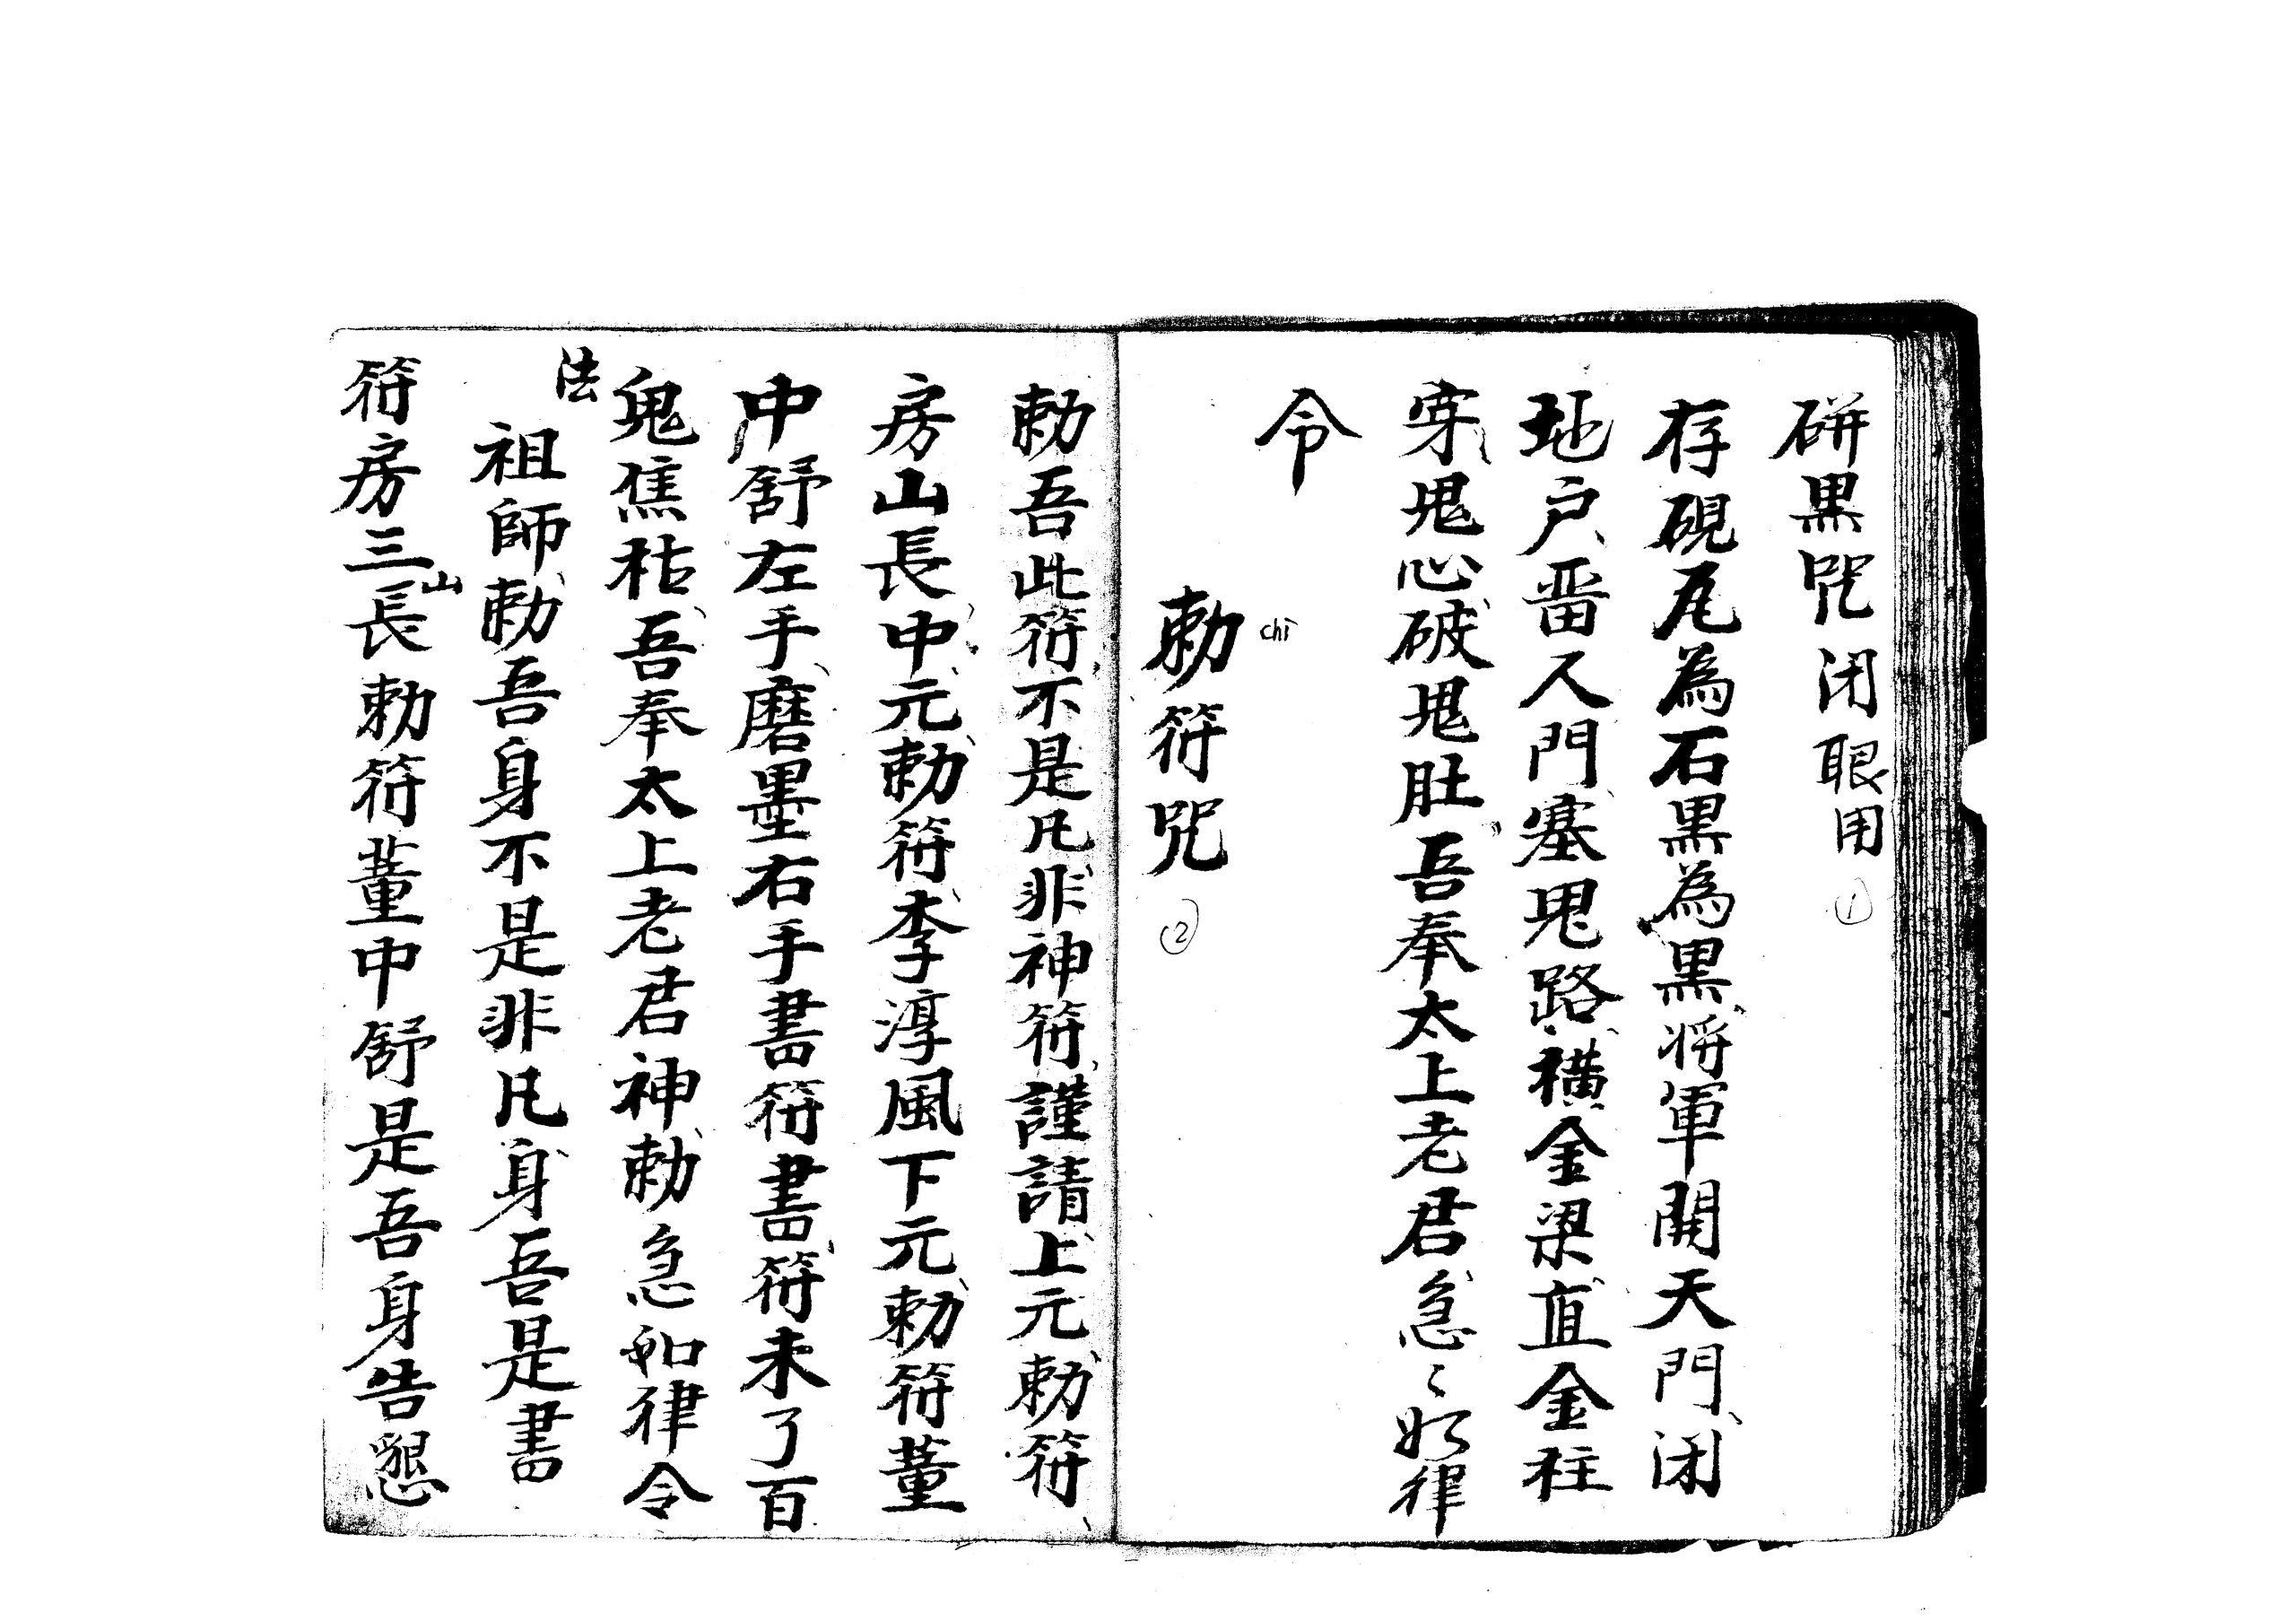 硑黒咒闭眼用 ①
存硯瓦為石黒為黒将軍開天門闭
地户畨人門塞鬼路横金梁直金柱
穿鬼心破鬼肚吾奉太上老君急〻如律
令
chì
勅符咒 ②
勅吾此符不是凡非神符謹請上元勅符
房山長中元勅符李淳風下元勅符董
中舒左手磨墨右手書符書符未了百
鬼焦枯吾奉太上老君神勅急如律令
法
祖師勅吾身不是非凡身吾是書
符房三山長勅符董中舒是吾身告懇